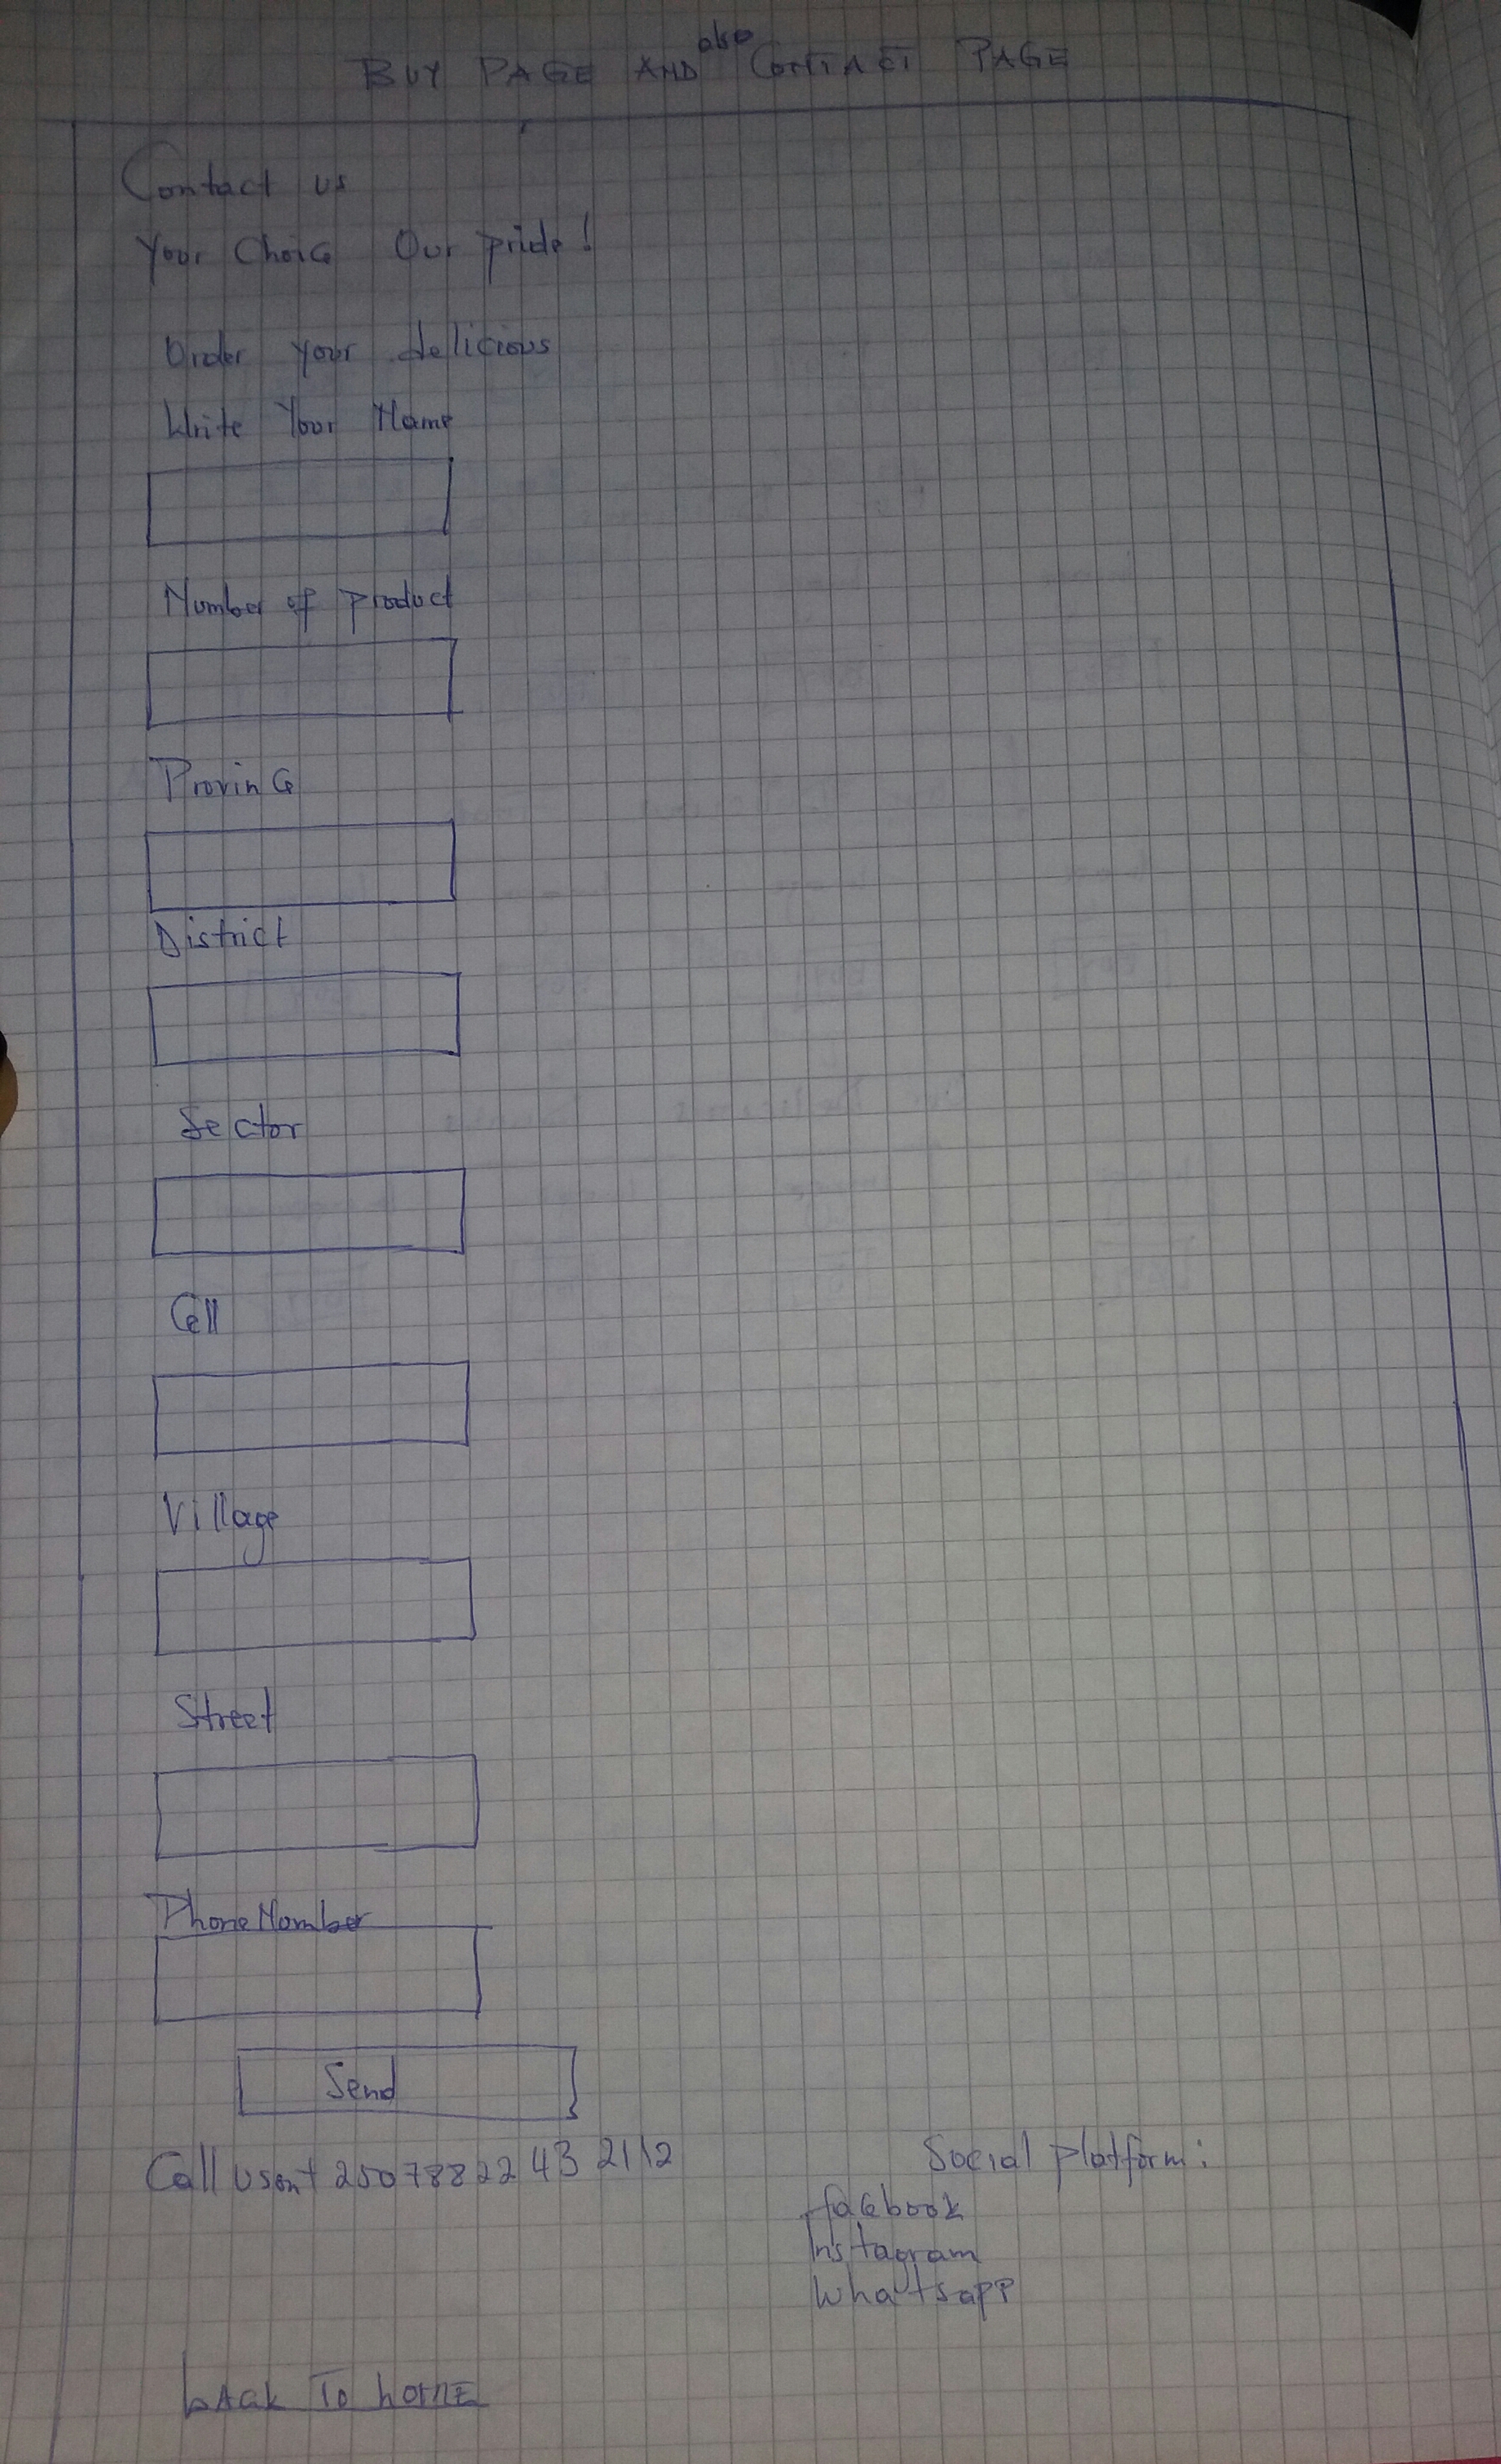 BUY PAGE AND also CONTACT PAGE
Contact us
Your Choice Our pride!
Order your delicious
Write Your Name
Number of product
Province
District
Sector
Cell
Village
Street
Phone Number
Send
Call us on + 25078822 43 2112
Social platform:
facebook
Instagram
Whatsapp
bACK TO hOME